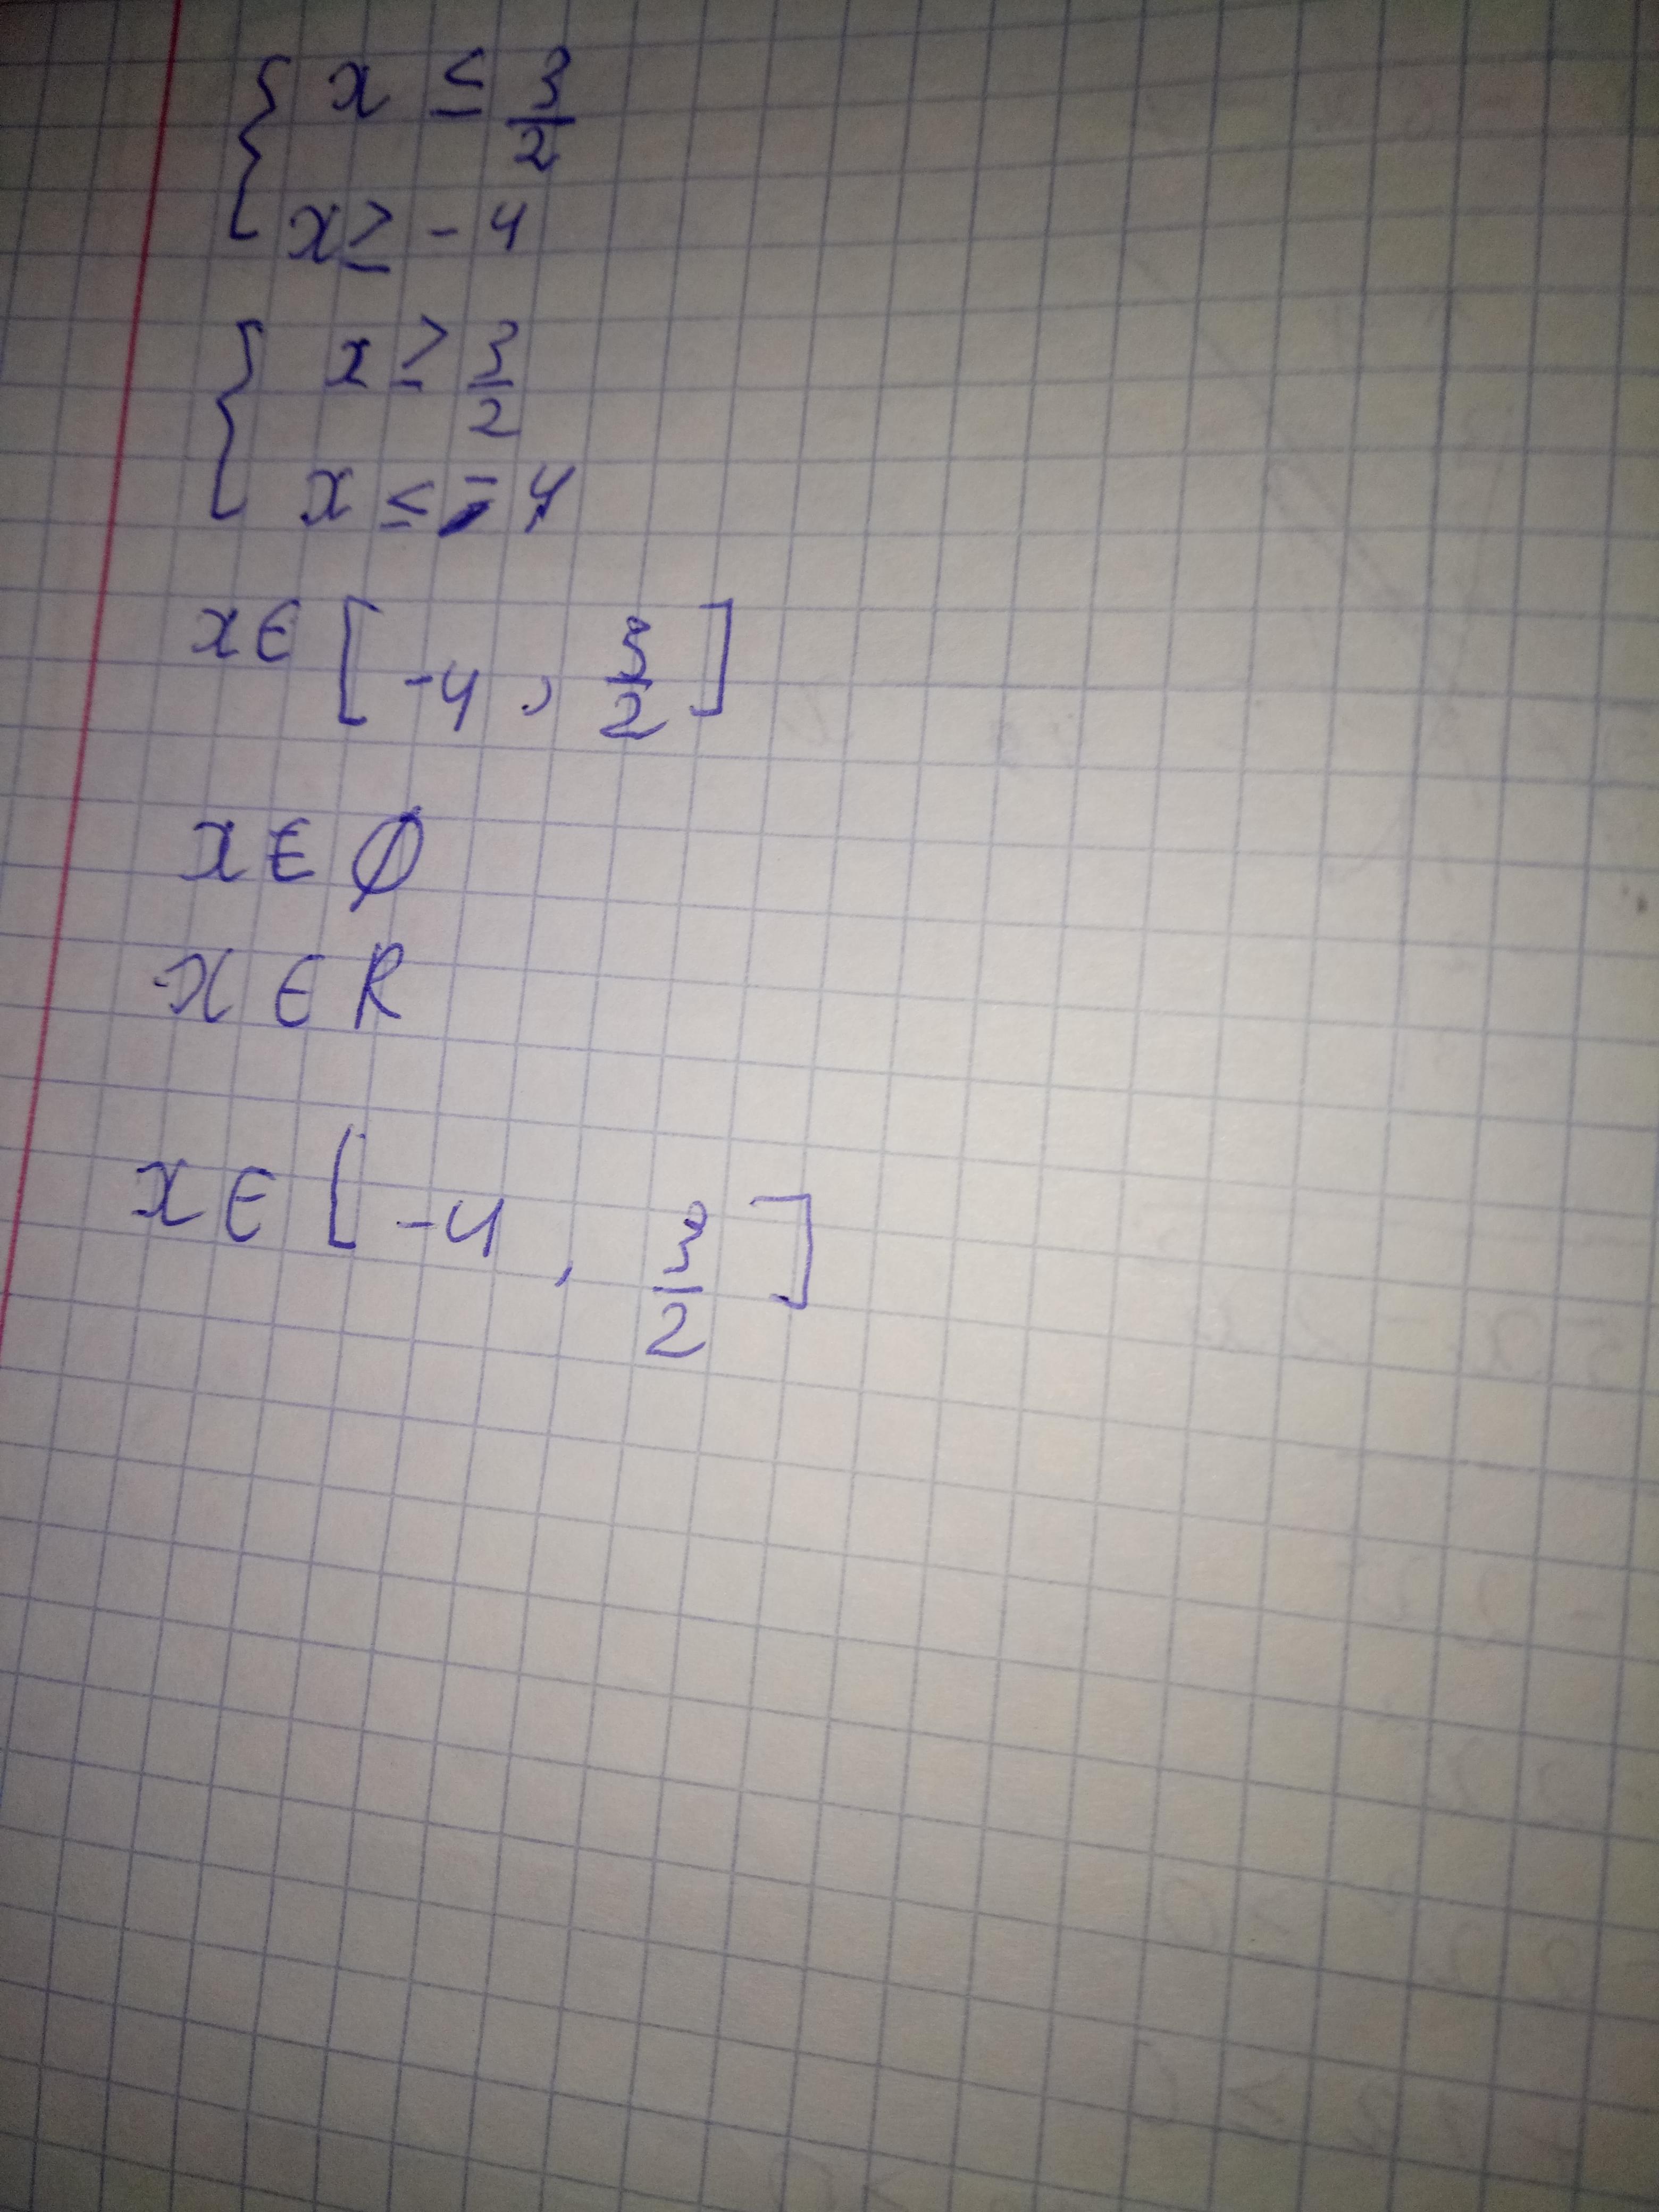 { x ≤ 3/2
x ≥ -4
{ x ≥ 3/2
x ≤ -4
x ∈ [-4, 3/2]
x ∈ ∅
x ∈ R
x ∈ [-4, 3/2]